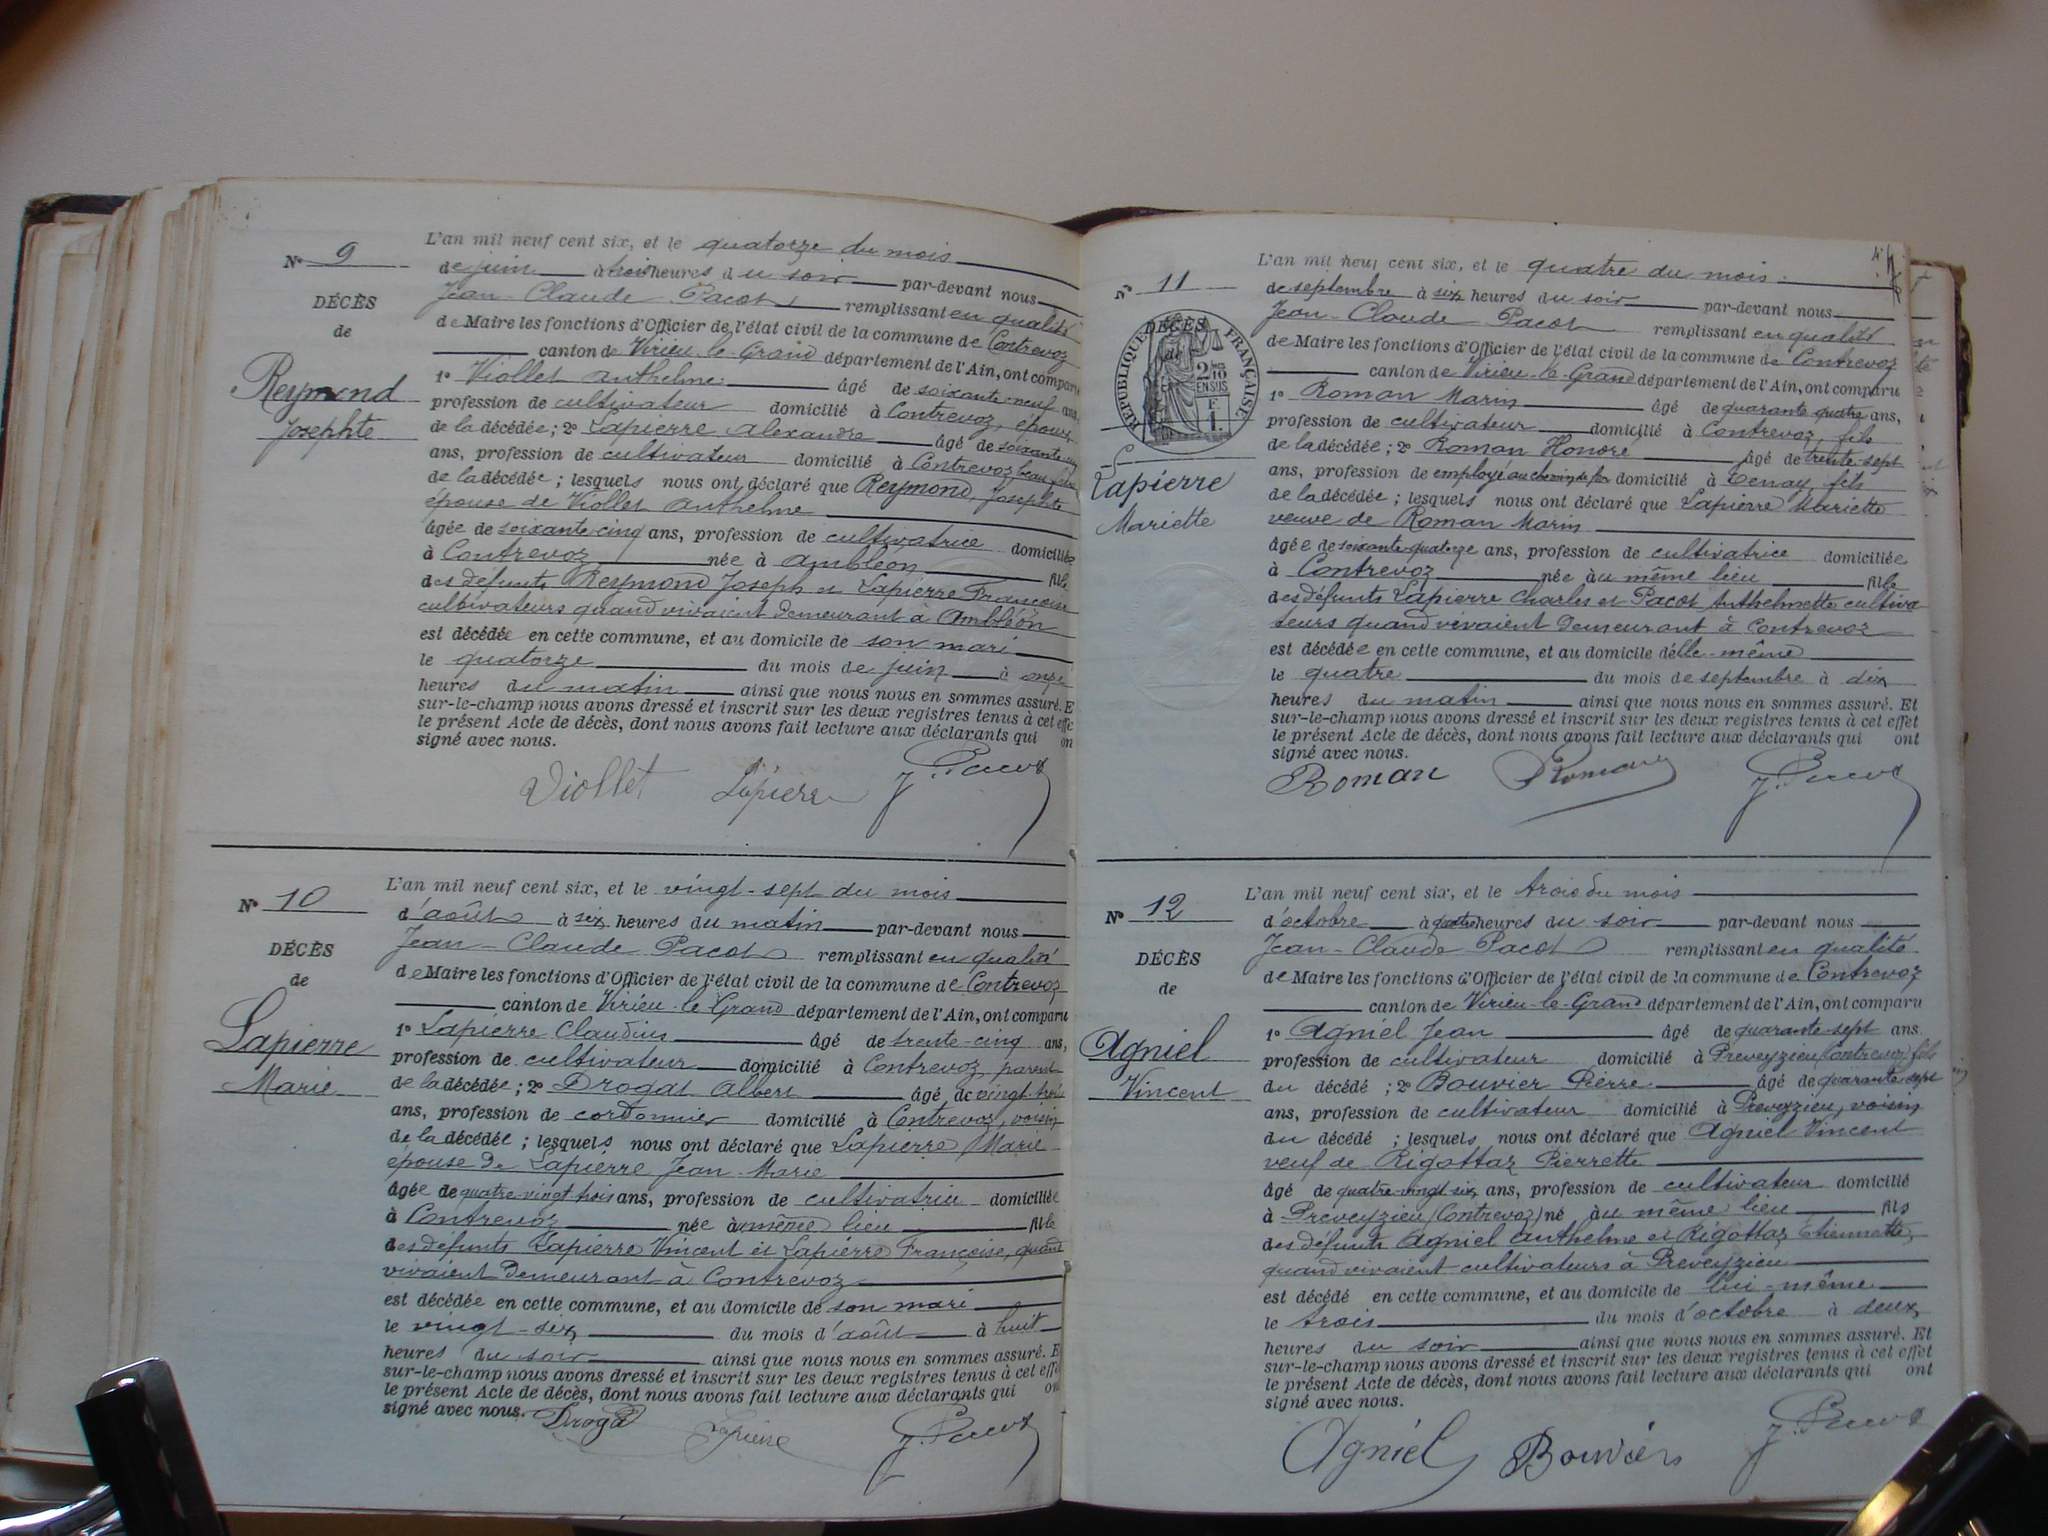 N° 9
DÉCÈS
de
Reymond
Josephte
L'an mil neuf cent six, et le quatorze du mois
de juin à trois heures du soir par-devant nous
Jean-Claude Pacot remplissant en qualité
de Maire les fonctions d'Officier de l'état civil de la commune de Contrevoz
canton de Virieu-le-Grand département de l'Ain, ont comparu
1° Viollet Anthelme âgé de soixante-neuf ans,
profession de cultivateur domicilié à Contrevoz, époux
de la décédée; 2° Lapierre Alexandre âgé de soixante
ans, profession de cultivateur domicilié à Contrevoz beau
de la décédée; lesquels nous ont déclaré que Reymond Josephte
épouse de Viollet Anthelme
âgée de soixante-cinq ans, profession de cultivatrice domiciliée
à Contrevoz née à Ambléon fille
des défunts Reymond Joseph et Lapierre Françoise
cultivateurs quand vivaient demeurant à Ambléon
est décédée en cette commune, et au domicile de son mari
le quatorze du mois de juin à onze
heures du matin ainsi que nous nous en sommes assuré. E
sur-le-champ nous avons dressé et inscrit sur les deux registres tenus à cet effe
le présent Acte de décès, dont nous avons fait lecture aux déclarants qui on
signé avec nous.
Viollet Lapierre J. Pacot
N° 10
DÉCÈS
de
Lapierre
Marie
L'an mil neuf cent six, et le vingt-sept du mois
d'août à six heures du matin par-devant nous
Jean-Claude Pacot remplissant en qualité
de Maire les fonctions d'Officier de l'état civil de la commune de Contrevoz
canton de Virieu-le-Grand département de l'Ain, ont comparu
1° Lapierre Claudius âgé de trente-cinq ans,
profession de cultivateur domicilié à Contrevoz parent
de la décédée; 2° Drogat Albert âgé de vingt-trois
ans, profession de cordonnier domicilié à Contrevoz, voisin
de la décédée; lesquels nous ont déclaré que Lapierre Marie
épouse de Lapierre Jean-Marie
âgée de quatre-vingt trois ans, profession de cultivatrice domiciliée
à Contrevoz née à même lieu fille
des défunts Lapierre Vincent et Lapierre Françoise, quand
vivaient demeurant à Contrevoz
est décédée en cette commune, et au domicile de son mari
le vingt-six du mois d'août à huit
heures du soir ainsi que nous nous en sommes assuré. E
sur-le-champ nous avons dressé et inscrit sur les deux registres tenus à cet effe
le présent Acte de décès, dont nous avons fait lecture aux déclarants qui on
signé avec nous.
Drogat Lapierre J. Pacot
N° 11
DÉCÈS
de
RÉPUBLIQUE FRANÇAISE
2/10
EN SUS
F
1.
Lapierre
Mariette
L'an mil neuf cent six, et le quatre du mois
de septembre à six heures du soir par-devant nous
Jean-Claude Pacot remplissant en qualité
de Maire les fonctions d'Officier de l'état civil de la commune de Contrevoz
canton de Virieu-le-Grand département de l'Ain, ont comparu
1° Roman Marin âgé de quarante quatre ans,
profession de cultivateur domicilié à Contrevoz, fils
de la décédée; 2° Roman Honoré âgé de trente-sept
ans, profession de employé au chemin de fer domicilié à Tenay, fils
de la décédée; lesquels nous ont déclaré que Lapierre Mariette
veuve de Roman Marin
âgée de soixante-quatorze ans, profession de cultivatrice domiciliée
à Contrevoz née àu même lieu fille
des défunts Lapierre Charles et Pacot Anthelmette cultiva-
teurs quand vivaient demeurant à Contrevoz
est décédée en cette commune, et au domicile d'elle-même
le quatre du mois de septembre à dix
heures du matin ainsi que nous nous en sommes assuré. Et
sur-le-champ nous avons dressé et inscrit sur les deux registres tenus à cet effet
le présent Acte de décès, dont nous avons fait lecture aux déclarants qui ont
signé avec nous.
Roman Roman J. Pacot
N° 12
DÉCÈS
de
Agniel
Vincent
L'an mil neuf cent six, et le trois du mois
d'octobre à quatre heures du soir par-devant nous
Jean-Claude Pacot remplissant en qualité
de Maire les fonctions d'Officier de l'état civil de la commune de Contrevoz
canton de Virieu-le-Grand département de l'Ain, ont comparu
1° Agniel Jean âgé de quarante-sept ans
profession de cultivateur domicilié à Preveyzieu (Contrevoz) fils
du décédé; 2° Bouvier Pierre âgé de quarante-sept
ans, profession de cultivateur domicilié à Preveyzieu, voisin
du décédé; lesquels nous ont déclaré que Agniel Vincent
veuf de Rigottaz Pierrette
âgé de quatre-vingt-six ans, profession de cultivateur domicilié
à Preveyzieu (Contrevoz) né àu même lieu fils
des défunts Agniel Anthelme et Rigottaz Etiennette,
quand vivaient cultivateurs à Preveyzieu
est décédé en cette commune, et au domicile de lui-même
le trois du mois d'octobre à deux
heures du soir ainsi que nous nous en sommes assuré. Et
sur-le-champ nous avons dressé et inscrit sur les deux registres tenus à cet effet
le présent Acte de décès, dont nous avons fait lecture aux déclarants qui ont
signé avec nous.
Agniel Bouvier J. Pacot